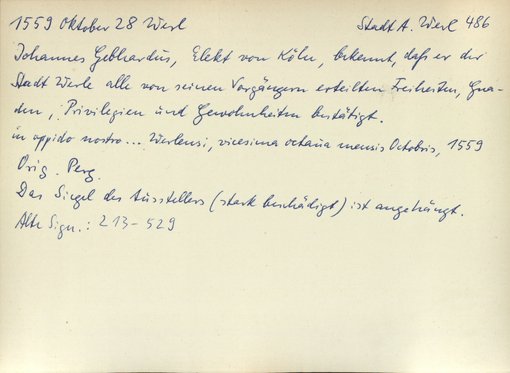 1559 Oktober 28 Werl Stadt A. Werl 486
Johannes Gebhardus, Elekt von Köln, bekennt, daß er der
Stadt Werle alle von seinen Vorgängern erteilten Freiheiten, Gna-
den, Privilegien und Gewohnheiten bestätigt.
in oppido nostro... Werlensi, vicesima octaua mensis Octobris, 1559
Orig. Perg.
Das Siegel des Ausstellers (stark beschädigt) ist angehängt.
Alte Sign.: 213-529